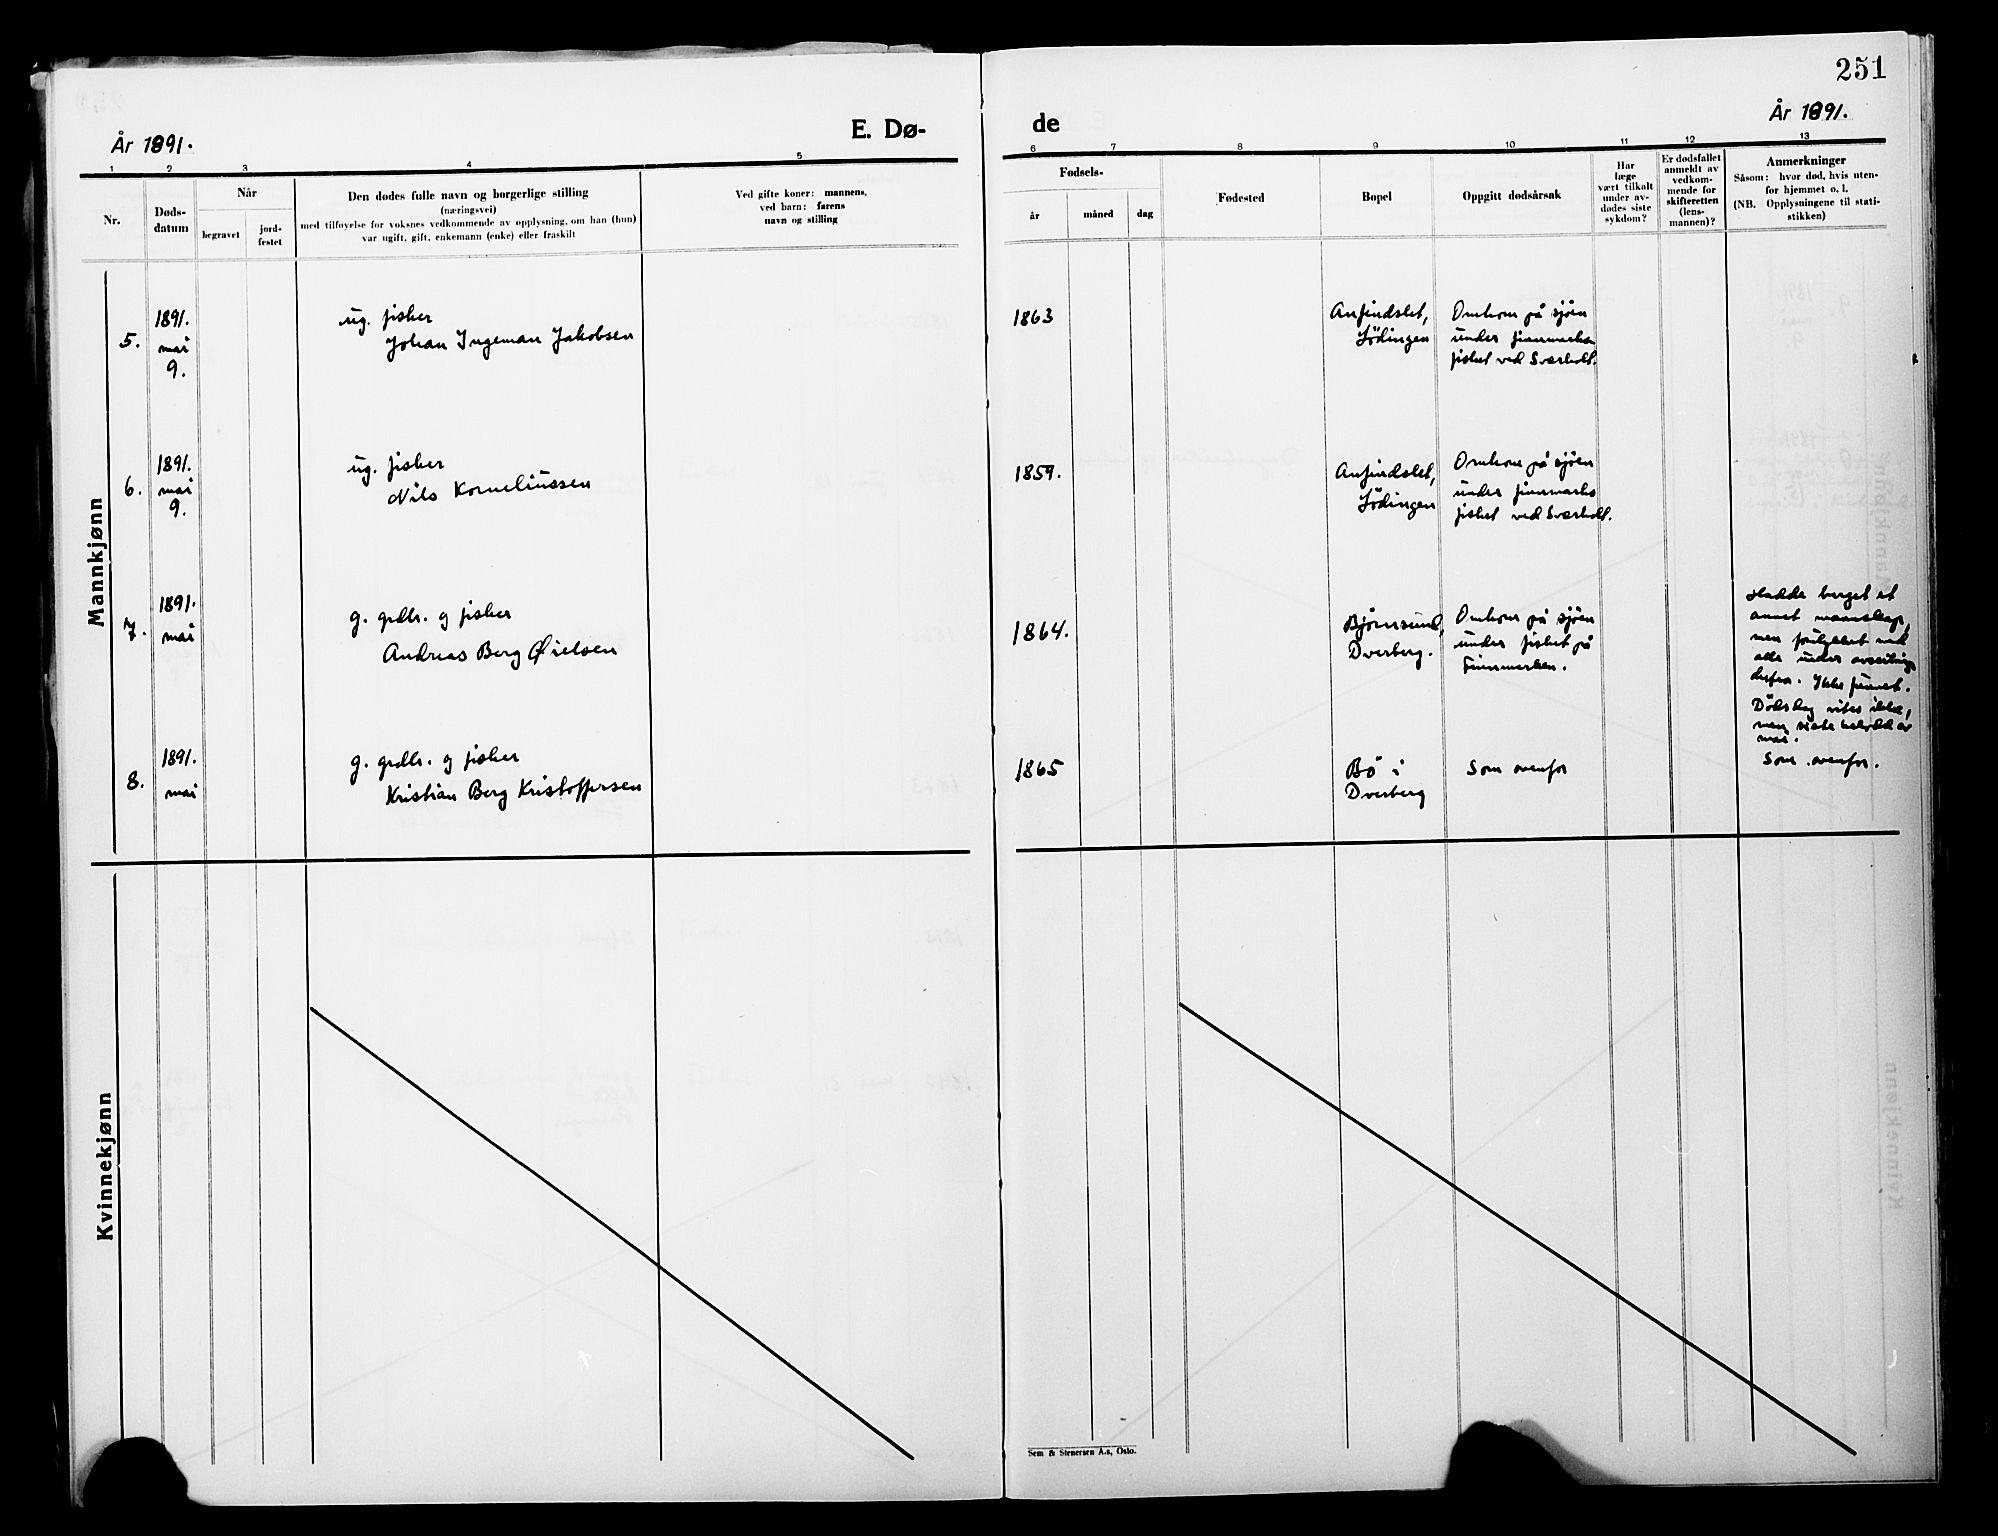 251
År 1891.
E. Dø-
de
År 1891.
1 2 3 4 5
6 7 8 9 10 11 12 13
Nr.
Døds-
datum
Når
begravet
jord-
festet
Den dødes fulle navn og borgerlige stilling
(næringsvei)
med tilføyelse for voksnes vedkommende av opplysning, om han (hun)
var ugift, gift, enkemann (enke) eller fraskilt
Ved gifte koner: mannens,
ved barn: farens
navn og stilling
Fødsels-
år
måned
dag
Fødested
Bopel
Oppgitt dødsårsak
Har
læge
vært tilkalt
under av-
dødes siste
sykdom?
Er dødsfallet
anmeldt av
vedkom-
mende for
skifteretten
(lens-
mannen)?
Anmerkninger
Såsom: hvor død, hvis uten-
for hjemmet o. l.
(NB. Opplysningene til stati-
stikken)
Mannkjønn
5.
1891.
mai
9.
ug. fisker
Johan Ingeman Jakobsen
1863
Anfindslet,
Lödingen
Omkom på sjöen
under finnmarks
fisket ved Sværholt.
6.
1891.
mai
9.
ug. fisker
Nils Korneliussen
1859.
Anfindslet,
Lödingen
Omkom på sjöen
under finnmarks
fisket ved Sværholt.
7.
1891.
mai
g. grdbr. og fisker
Andreas Berg Øielsen
1864.
Bjørnsund,
Dverberg.
Omkom på sjöen
under fisket på
Finnmarken.
Hadde berget et
annet mannskap,
men forulykket med
alle under avseiling
derfra. Ikke funnet.
Dödsdag vites ikke,
men siste halvdel av
mai.
8.
1891.
mai
g. grdbr. og fisker
Kristian Berg Kristoffersen
1865
Bö i
Dverberg
Som ovenfor
Som ovenfor.
Kvinnekjønn
Sem & Stenersen A.s, Oslo.